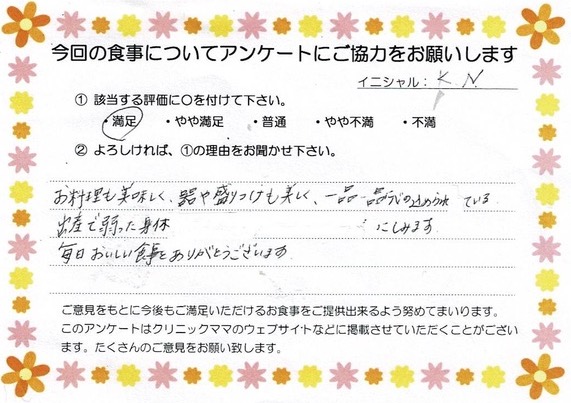 今回の食事についてアンケートにご協力をお願いします
イニシャル：K N
① 該当する評価に〇を付けて下さい。
・満足 ・やや満足 ・普通 ・やや不満 ・不満
② よろしければ、①の理由をお聞かせ下さい。
お料理も美味しく、器や盛りつけも美しく、一品一品 ている
出産で弱った身体 にしみます
毎日おいしい食事をありがとうございます
ご意見をもとに今後もご満足いただけるお食事をご提供出来るよう努めてまいります。
このアンケートはクリニックママのウェブサイトなどに掲載させていただくことがござい
ます。たくさんのご意見をお願い致します。